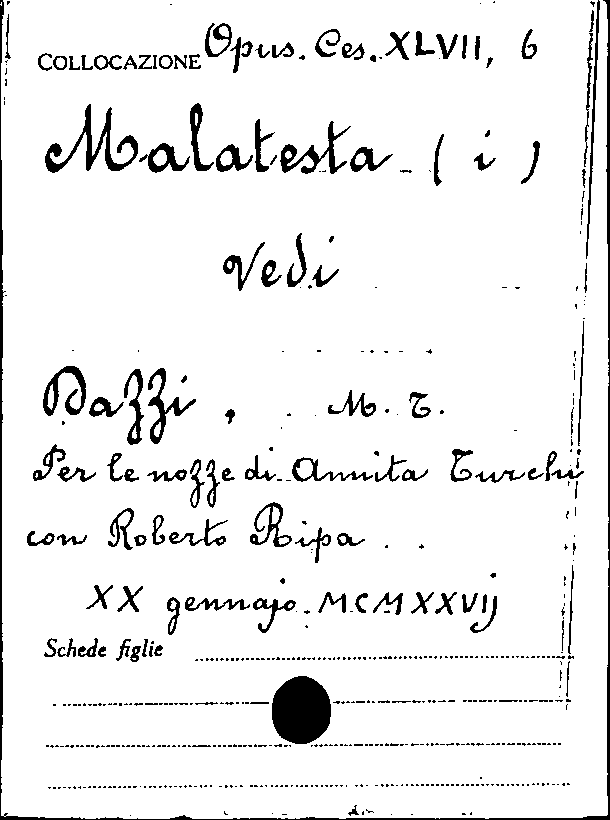 COLLOCAZIONE Opus. Ces. XLVII, 6
Malatesta (i)
Vedi
Dazzi, M. T.
Per le nozze di Annita Turchi
con Roberto Ripa
XX gennajo MCMXXVIJ
Schede figlie